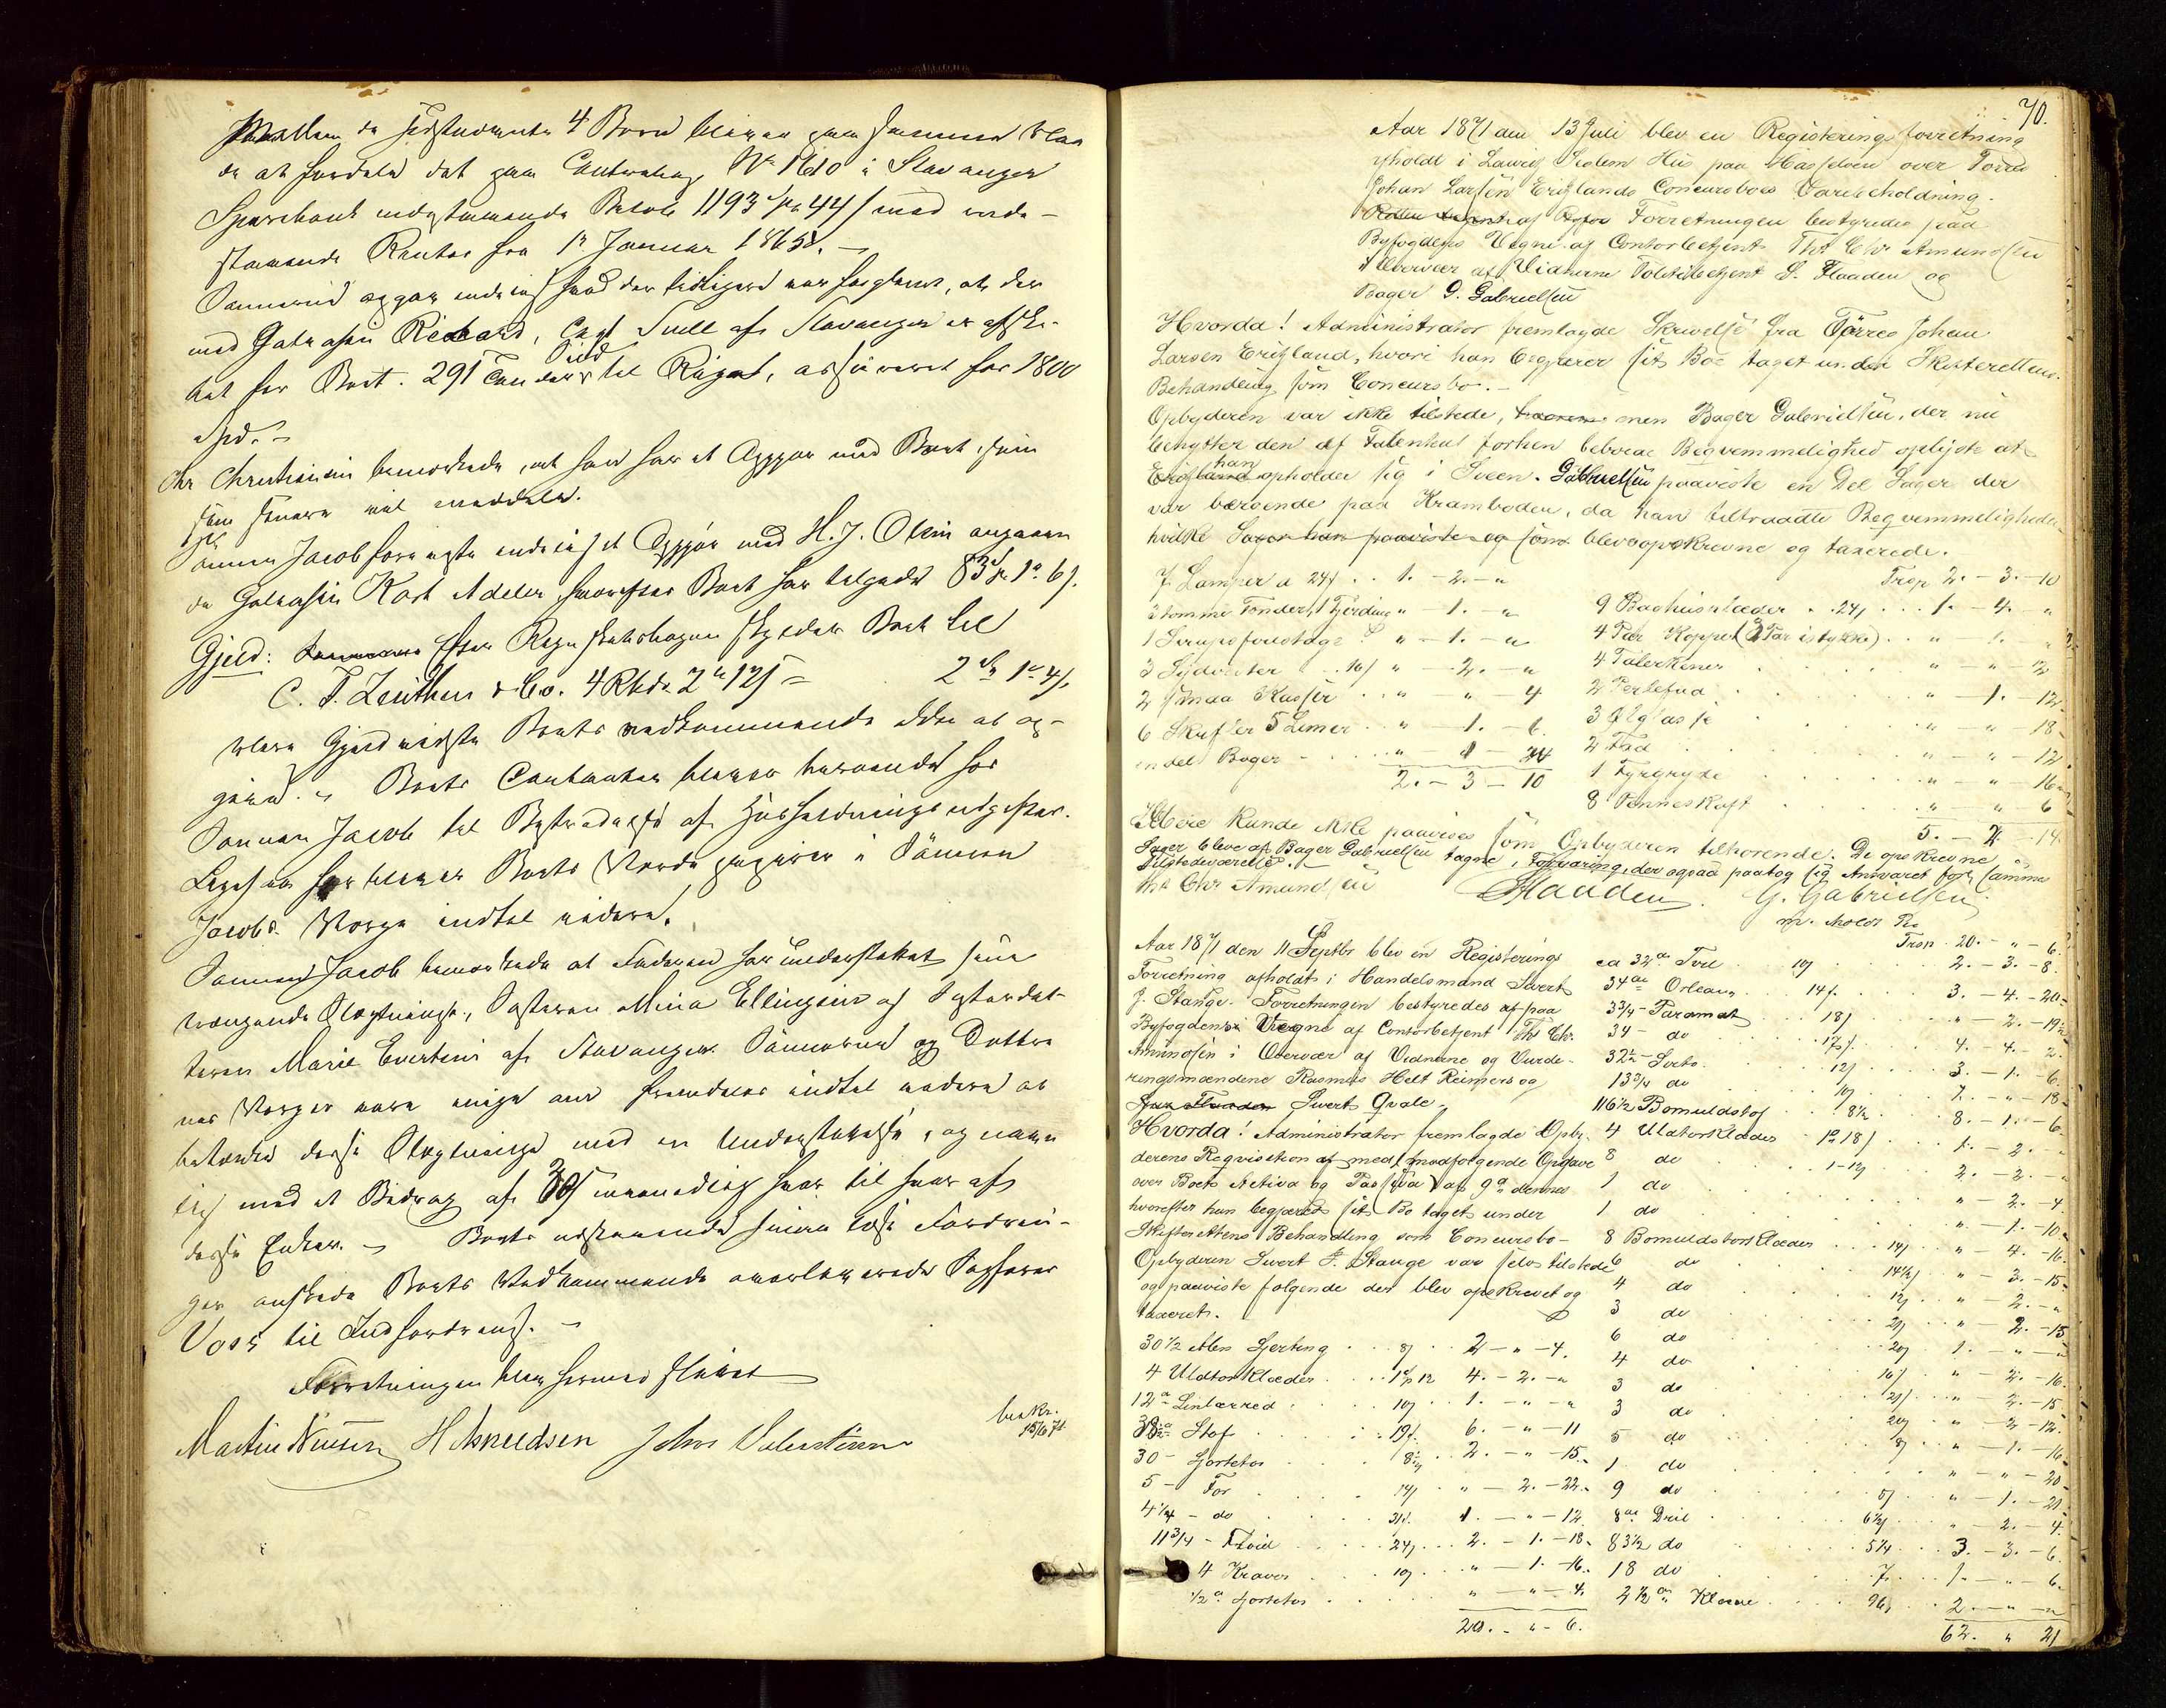 Mellem de sidstnævnte 4 Børn bliver som Formue blan
de at fordele det paa Contrabog No 1610 i Stavanger
Sparebank indestaaende Beløb 1193 Spd 44 s med inde-
staaende Renter fra 1 Januar 1865. —
Sønnerne opgav endvidere hvad der tidligere var forglemt, at der
med Galeasen Richard, Capt Tuell af Stavanger er afske-
bet for Boet. 291 Tønder Sild til Riga, assureret for 1800
Spd. —
Chr Christensen bemærkede, at han har et Opgjør med Boet, som
han senere vil meddele.
Sønnen Jacob foreviste endvidere et Opgjør med H. J. Olsen angaaen
de Galeasen Kort Adeler, hvorefter Boet har tilgode 83 Spd 1 6 s.
Gjæld: Efter Regnskabsbogen skylder Boet til
C. T. Zeuthen & Co. 4 Rbd. 2 12 s = 2 1 4 s.
Videre Gjæld vidste Boets Vedkommende ikke at op-
give. — Boets Contanter bleve beroende hos
Sønnen Jacob til Bestridelse af Husholdningsudgifter.
Ligesaa forbliver Boets Værdipapirer i Sønnen
Jacobs Værge indtil videre.
Sønnen Jacob bemærkede at Faderen har understøttet sine
trængende Slægtninge, Søsteren Mina Ellingsen og Søsterdat-
teren Marie Evertsen af Stavanger. Sønnerne og Dottre
nes Værger vare enige om fremdeles indtil videre at
betænke disse Slægtninge med en Understøttelse, og navn
lig med et Bidrag af 30 s maanedlig hver til hver af
disse Enker. — Boets udestaaende smaa løse Fordrin-
ger ønskede Boets Vedkommende overleverede Sagfører
Voss til Indfordring. —
Forretningen blev hermed sluttet
Martin Nilssen H Asknudsen John Valentinsen
beskr.
15/6 71
70.
Aar 1871 den 13 Juli blev en Registeringsforretning
afholdt i Lauritz Hus paa Hasseløen over Tørres
Johan Larsen Erigslands Concursboes Varebeholdning.
Forretningen bestyredes paa
Byfogdens Vegne af Contorbetjent Th Chr Amundsen
i Overvær af Vidnerne Toldbetjent S. Flaaden og
Bager G. Gabrielsen
Hvorda! Administrator fremlagde Skrivelse fra Tørres Johan
Larsen Erigsland, hvori han begjærer sit Bo taget under Skifterettens
Behandling som Concursbo. —
Opbyderen var ikke tilstede, men Bager Gabrielsen, der nu
benytter den af Fallenten forhen beboede Beqvemmelighed oplyste at
han opholder sig i Sveen. Gabrielsen paaviste en Del Sager der
var beroende paa Kramboden, da han tiltraadte Beqvemmeligheden
hvilke Sager han paaviste og som bleve opskrevne og taxerede.
7 Lamper a 24 s . . 1. - 2. - "
3 tomme Tønder, 1 Fjerding " - 1. - "
1 Sirupsfoustage " - 1. - "
3 Sydvester . . 16 s " - 2. - "
2 smaa Kasser . . " " - 4
6 Skufler 5 Limer . . " - 1. - 6.
en del Bøger . . . " - 1 - 24
2. - 3 - 10
Trsp 2. - 3. - 10
9 Baghusplader . . 24 s . . . 1. - 4. "
4 Par Kopper (2 Par istykker) . . " 1. "
4 Talerkener . . " - " - 12
2 Terlefad . . " - 1. - 12
3 Ølglasse . . " - " - 18
2 Fad . . " - " - 12
1 Fyrgryde . . " - " - 16
8 Penneskaft . . " - " 6
5. - 2. - 14
Mere kunde ikke paavises som Opbyderen tilhørende. De opskrevne
Sager bleve af Bager Gabrielsen tagne i Forvaring, der ogsaa paatog sig Ansvaret for samme
Tilstedeværelse. —
Th Chr Amundsen SFlaaden. G. Gabrielsen
m. holdt Pen
Aar 1871 den 11 Septbr blev en Registerings
Forretning afholdt i Handelsmand Sivert
J. Stange. Forretningen bestyredes af paa
Byfogdens Vegne af Contorbetjent Th Chr.
Amundsen i Overvær af Vidnerne og Vurde-
ringsmændene Rasmus Helt Reimers og
Sivert Qvale.
Hvorda! Administrator fremlagde Opby-
derens Reqvisition med medfølgende Opgave
over Boets Activa og Passiva af 9de dennes
hvorefter han begjærede sit Bo taget under
Skifterettens Behandling som Concursbo —
Opbyderen Sivert J. Stange var selv tilstede
og paaviste følgende der blev opskrevet og
taxeret.
30 1/2 Alen Gjerting . . . 8 s . . 2 - " - 4.
4 Uldtørklæder . . . 1 12 4. - 2. - "
12 a Linlærred . . . 10 s . . 1. - " - "
Stof . . . 19 s. 6. - " - 11
30 - Skjortetøi . . . 8 1/2 s . . 2. - " - 15.
5 - For . . . 14 s . . " - 2. - 22.
4 1/4 - do . . . 31 s . 1. - " - 12
11 3/4 - Tvid . . . 24 s . . 2. - 1. - 18.
4 Kraver . . . 10 s . . " - 1. - 16.
1/2 a Skjortetøi . . . " - " - 4.
20. - " - 6.
Trsp . 20. - " - 6.
ca 32 a Tvil . . 10 s . . 2. - 3. - 8.
34 a Orleans . . 14 s . . 3. - 4. - 20
3 3/4 - Paramat . . 18 s . . " - 2. - 19 1/2
34 - do . . 17 s . . 4. - 4. - 2.
32 1/2 - Sorts . . 12 s . . 3. - 1. - 6.
13 3/4 do . . 10 s . . 1. - " - 18
116 1/2 Bomuldstøi . . 8 1/2 . . 8. - 1. - 6
4 Uldtørklæder . 1 18 s . . 1. - 2. - "
8 do . . 1-12 s . . 2. - 2. - "
1 do . . " - 2. - 4.
1 do . . " - 1. - 10.
8 Bomuldstørklæder . . . 14 s . . " - 4. - 16.
6 do . . 14 1/2 s . . " - 3. - 15
4 do . . 12 s . . " 2. - "
3 do . . 21 s . . " - 2. - 15
6 do . . 20 s . . 1. - " - "
4 do . . 16 s . . " - 2. - 16.
3 do . . 21 s . . " - 2. - 15
3 do . . 20 s . . " - 2 - 12.
5 do . . 8 s . . " - 1. - 16
1 do . . " - " - 20
9 do . . 5 s . . " - 1. - 21.
8 a Dril . . 6 1/2 s . . " - 2. - 4.
83 1/2 do . . 5 1/4 . . 3. - 3. - 6.
18 do . . 7. . . 1. - " - 6.
2 1/2 a Klæde . . . 96 s . . 2. - " - "
62. " 21